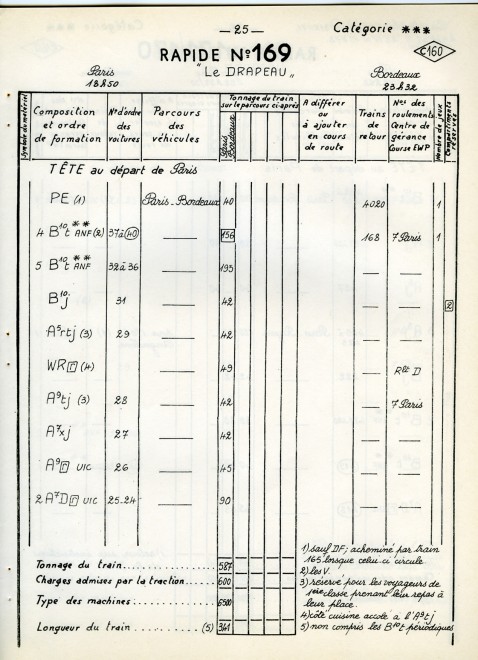 — 25 — Catégorie ***
RAPIDE N° 169 C160
"LE DRAPEAU"
Paris Bordeaux
18h50 23h32
Symbole du matériel
Composition et ordre de formation
N°d'ordre des voitures
Parcours des véhicules
Tonnage du train sur le parcours ci-après
Paris Bordeaux
A différer ou à ajouter en cours de route
Trains de retour
N°s des roulements Centre de gérance Course EWP
Nombre de jeux
Compartiments réservés
TÊTE au départ de Paris
PE (1) Paris_Bordeaux 40 4020 1
4 B10t ** ANF (2) 37à(40) —— 156 168 7 Paris 1
5 B10t ** ANF 32à36 —— 195 — —
B10j 31 —— 42 — — 2
A5rtj (3) 29 —— 42 — —
WR r (4) —— 49 — Rlt D
A9tj (3) 28 —— 42 — 7 Paris
A7xj 27 —— 42 — —
A9 r UIC 26 —— 45 — —
2 A7D r UIC 25-24 —— 90 — —
Tonnage du train 587
Charges admises par la traction 600
Type des machines 6500
Longueur du train (5) 341
1) sauf DF; acheminé par train
165 lorsque celui ci circule
2) les V.
3) réservé pour les voyageurs de
1ère classe prenant leur repas à
leur place.
4) côté cuisine accolé à l'A9tj
5) non compris les B10t périodiques